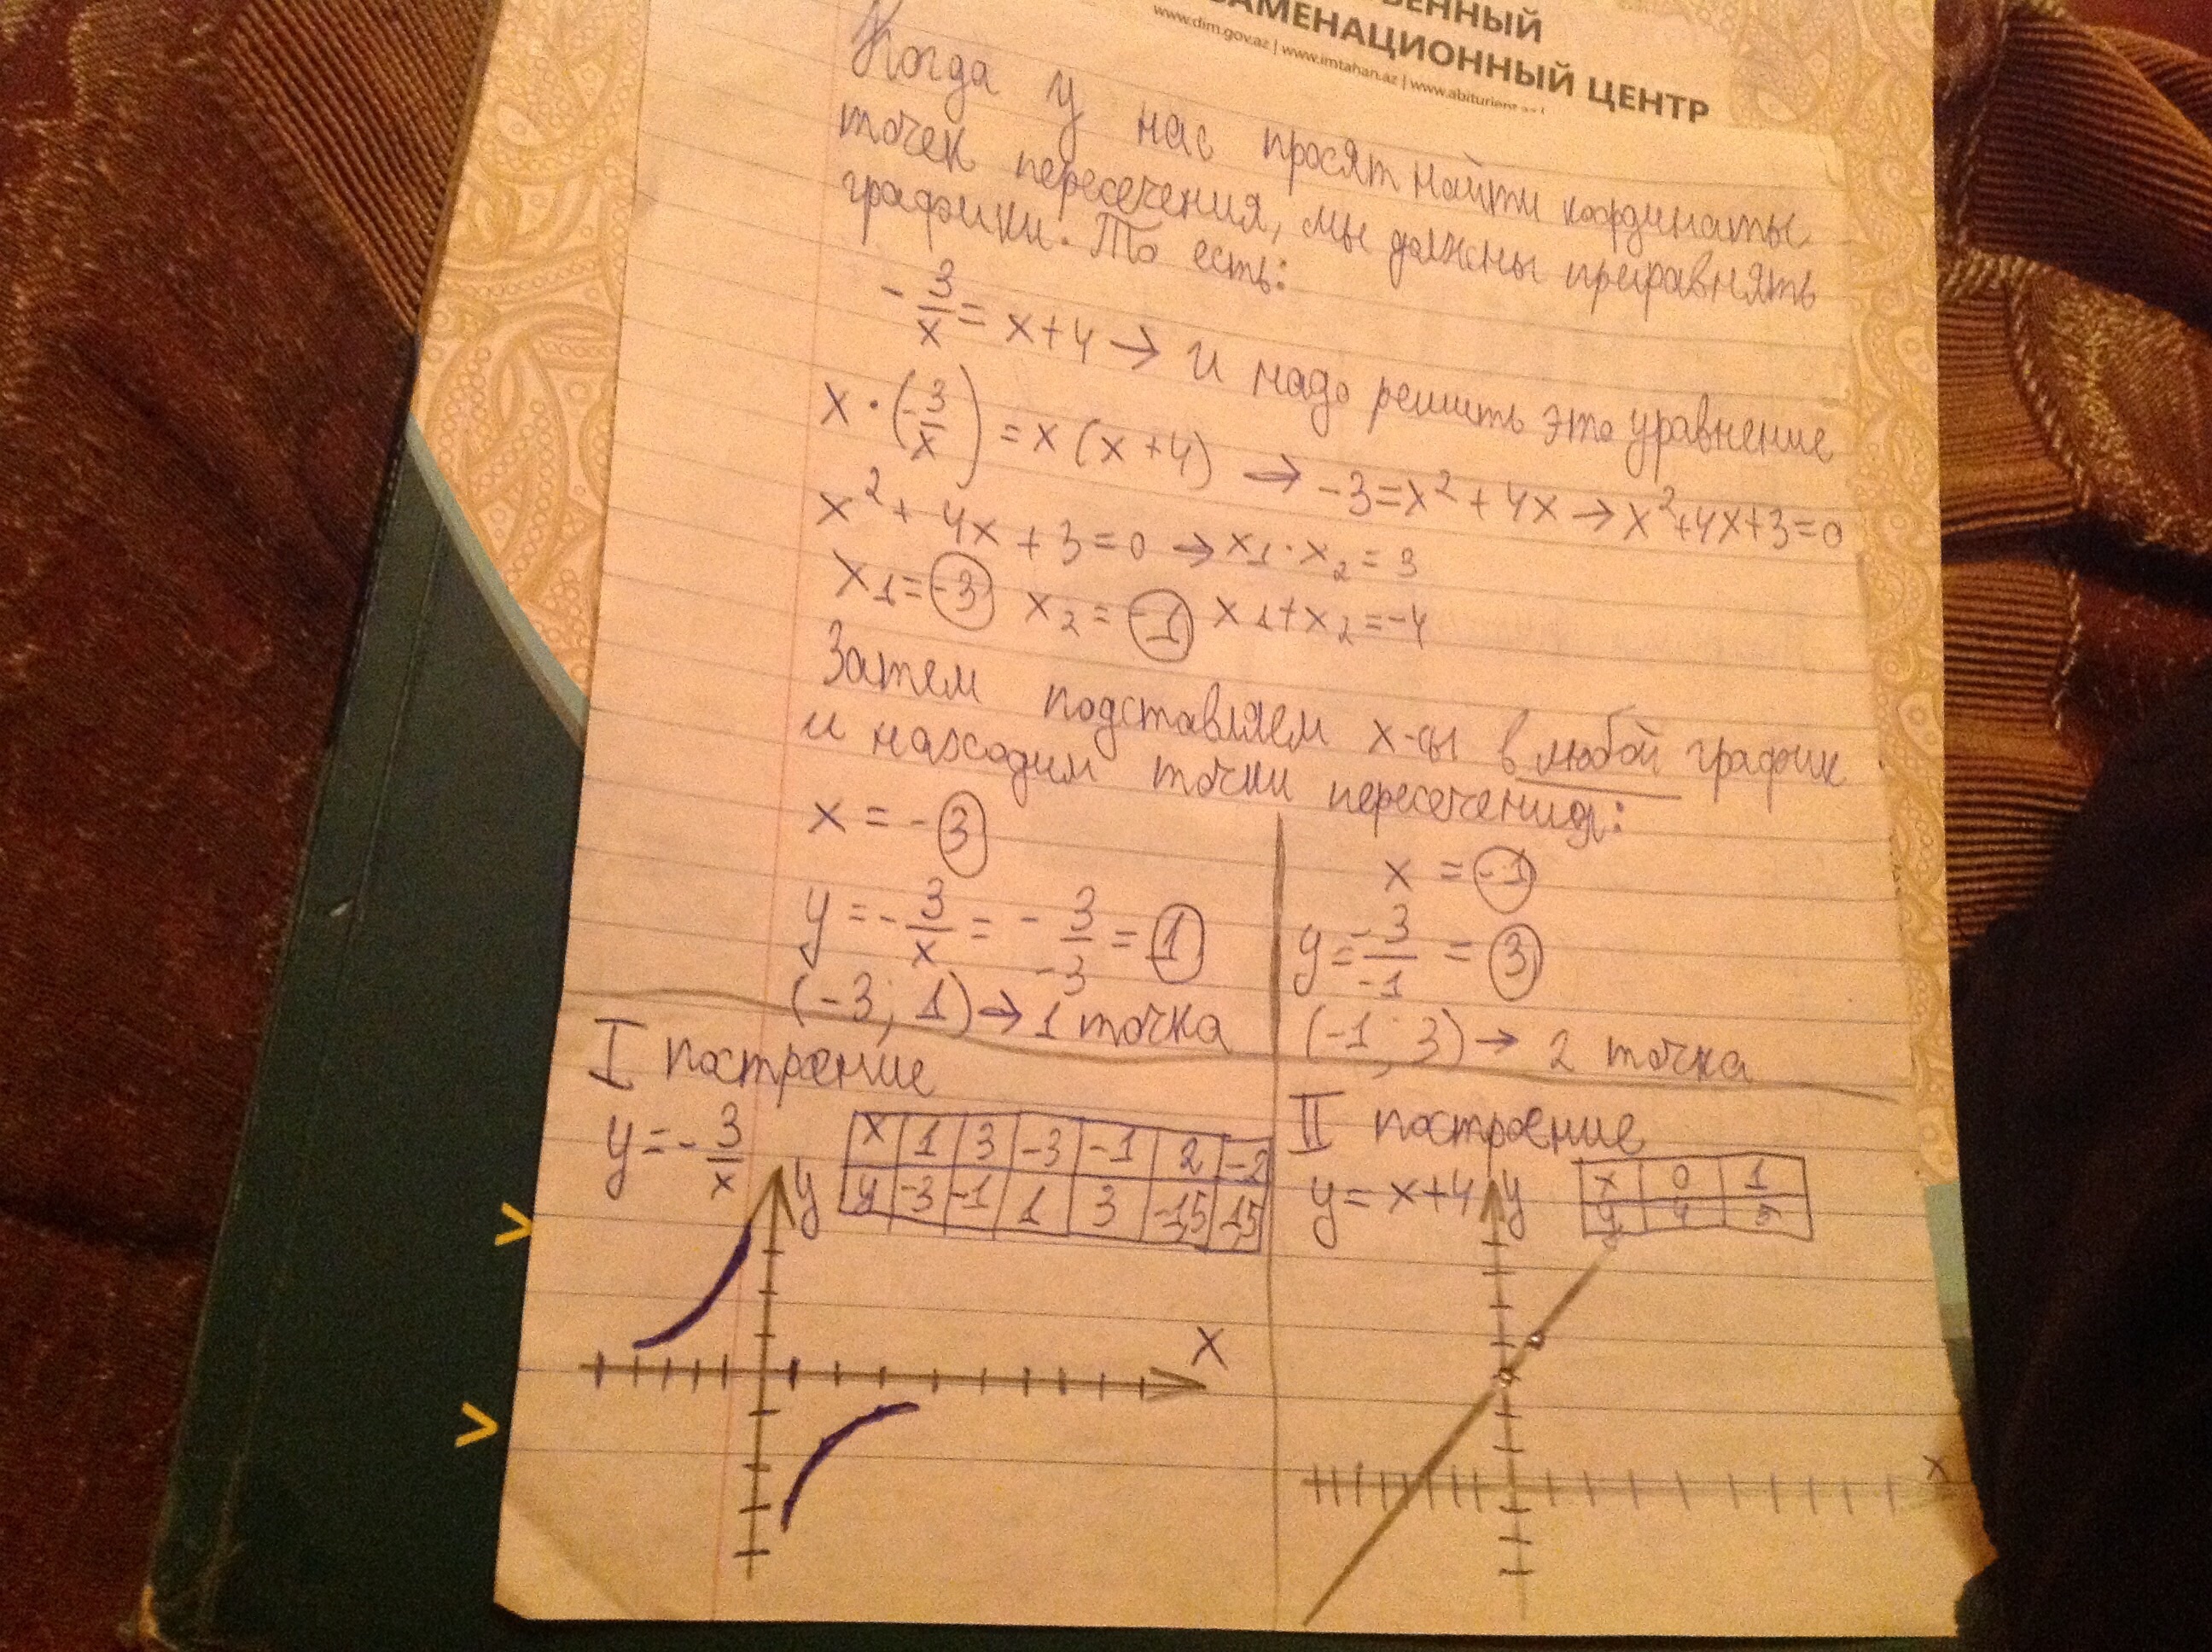 ВЕННЫЙ
АМЕНАЦИОННЫЙ ЦЕНТР
www.dim.gov.az | www.imtahan.az | www.abiturient
Когда у нас просят найти координаты
точек пересечения, мы должны приравнять
графики. То есть:
-3/x = x+4 → и надо решить это уравнение
x·(-3/x) = x(x+4) → -3=x²+4x → x²+4x+3=0
x²+4x+3=0 → x₁·x₂=3
x₁=-3 x₂=-1 x₁+x₂=-4
Затем подставляем x-сы в любой график
и находим точки пересечения:
x = -3
y = -3/x = -3/-3 = 1
(-3; 1) → 1 точка
x = -1
y = -3/-1 = 3
(-1; 3) → 2 точка
I построение
y = -3/x
x 1 3 -3 -1 2 -2
y -3 -1 1 3 -1,5 1,5
y
x
II построение
y = x+4
x 0 1
y 4 5
y
x